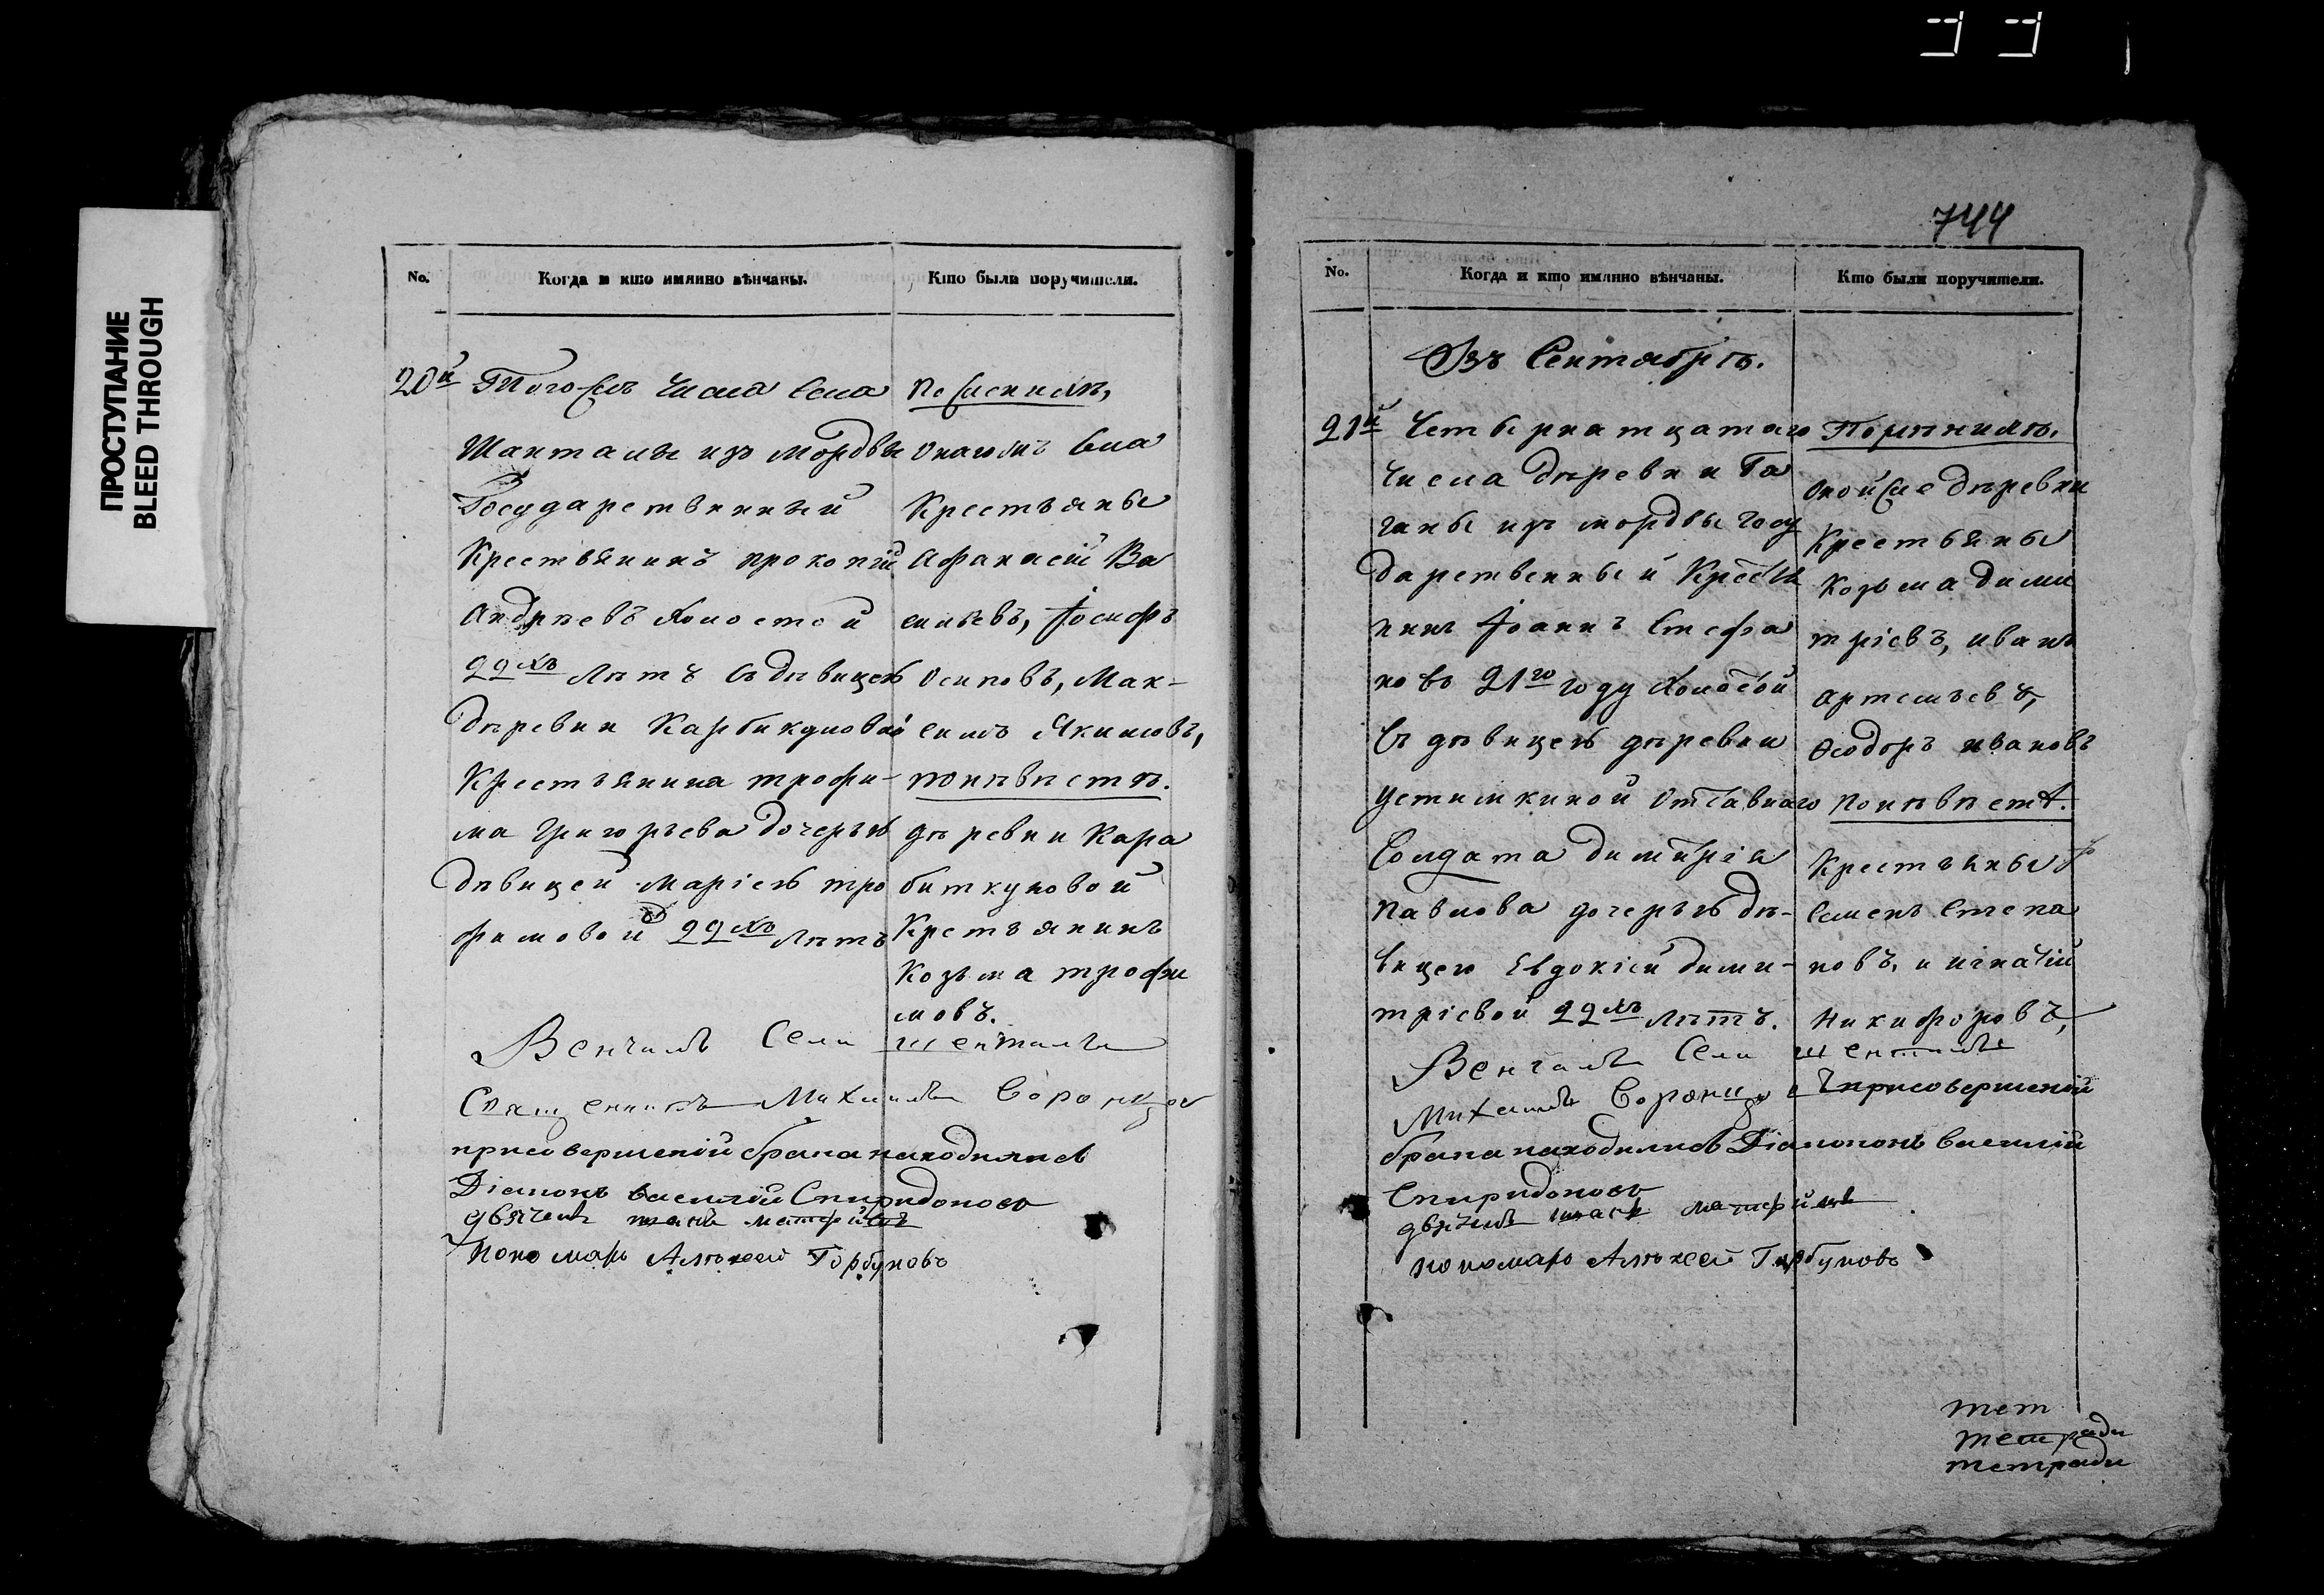 ПРОСТУПАНИЕ
BLEED THROUGH
No.
Когда и кто имянно вѣнчаны.
Кто были поручители.
20й
Того же числа села
Шанталы изъ мордвы
Государственный
Крестьянинъ прокопій
Андрѣевъ холостой
22хъ лѣтъ съ дѣвицею
дѣревни Карбикуловой
Крестьянина трофи-
ма Григорьева дочерью
дѣвицей маріею тро
фимовой 22хъ лѣтъ
По женихѣ,
онагожъ села
Крестьяны
Афанасій Ва
сильевъ, Іосифъ
Осиповъ, Мак-
симъ Якимовъ,
поневѣстѣ.
дѣревни Кара
биткуловой
Крестьянинъ
Козьма трофи
мовъ.
Венчалъ Села шенталы
Священникъ Михаилъ Воронцов
присовершеніи брака находились
Діаконъ василій Спиридоновъ
дьячекъ
Пономарь Алѣксей Горбуновъ
744
No.
Когда и кто имянно вѣнчаны.
Кто были поручители.
Въ Сентябрѣ.
21й
Четырнатцатаго
числа дѣревни Га
ганы изъ мордвы госу
дарственный Кресть
нинъ Іоаннъ Стефа
новъ 21го году холостой
съ дѣвицею дѣревни
устимкиной Отставнаго
Солдата димитрія
Павлова дочерью дѣ-
вицею Евдокіей дими-
тріевой 22хъ лѣтъ.
Поженихѣ.
Оной же дѣревни
Крестьяны
Козьма дими
тріевъ, иванъ
Артемьевъ,
Ѳеодоръ ивановъ
поневѣстѣ.
Крестьяны
Семенъ Степа
новъ, и игнатій
Никифоровъ,
Венчалъ Села шенталы
Михаилъ Воронцов присовершеніи
брака находились Діаконъ василій
Спиридоновъ
дьячекъ
пономарь Алѣксей Горбуновъ
тет
тетради
тетради